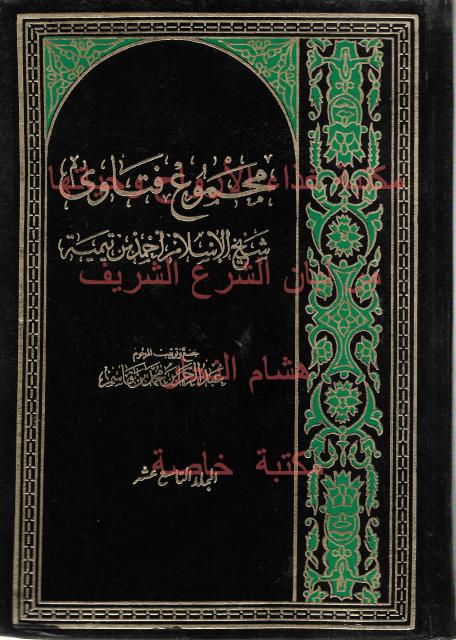 مجموع فتاوى
شيخ الإسلام أحمد بن تيمية
جمع وترتيب المرحوم
عبد الرحمن بن محمد بن قاسم
المجلد التاسع عشر
الأرواح
الشرع الشريف
هشام
مكتبة خاصة